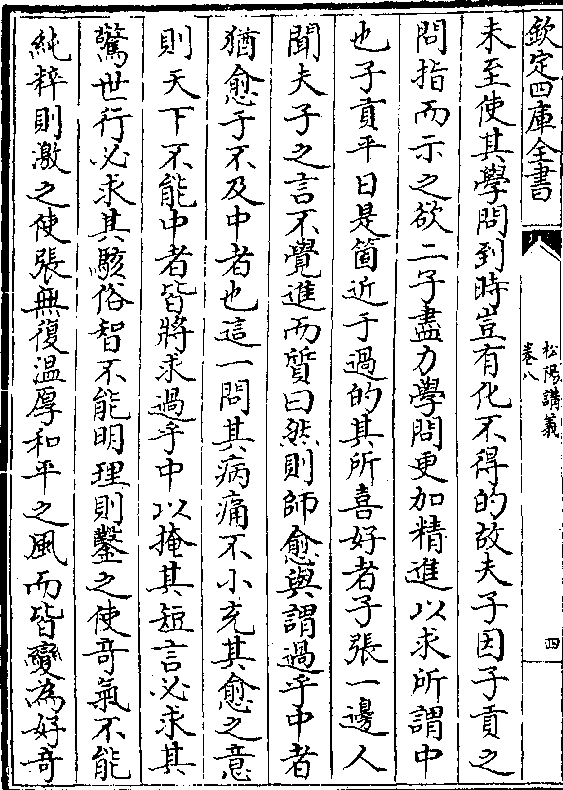 欽定四庫全書
松陽講義
卷八
四
未至使其學問到時豈有化不得的故夫子因子貢之
問指而示之欲二子盡力學問更加精進以求所謂中
也子貢平日是箇近于過的其所喜好者子張一邊人
聞夫子之言不覺進而質曰然則師愈與謂過乎中者
猶愈于不及中者也這一問其病痛不小充其愈之意
則天下不能中者皆將求過乎中以掩其短言必求其
驚世行必求其駭俗智不能明理則鑿之使奇氣不能
純粹則激之使張無復温厚和平之風而皆變為好奇